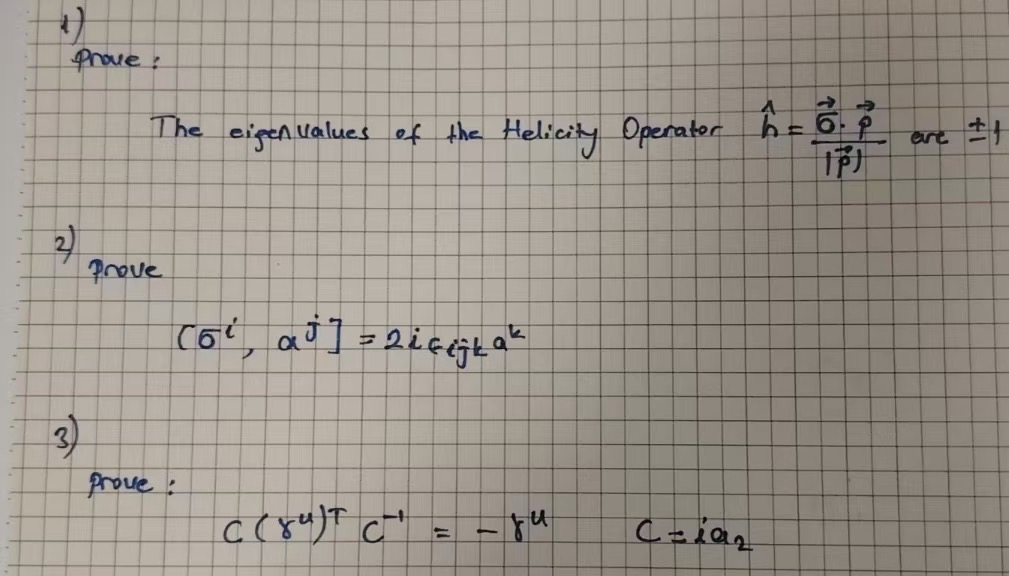 1)
Prove :
The eigenvalues of the Helicity Operator ĥ = σ⃗ · p⃗ / |p⃗| are ±1
2)
Prove
[σⁱ, αʲ] = 2i ϵᵢⱼₖ αᵏ
3)
Prove :
C (γᵘ)ᵀ C⁻¹ = - γᵘ C = iα₂